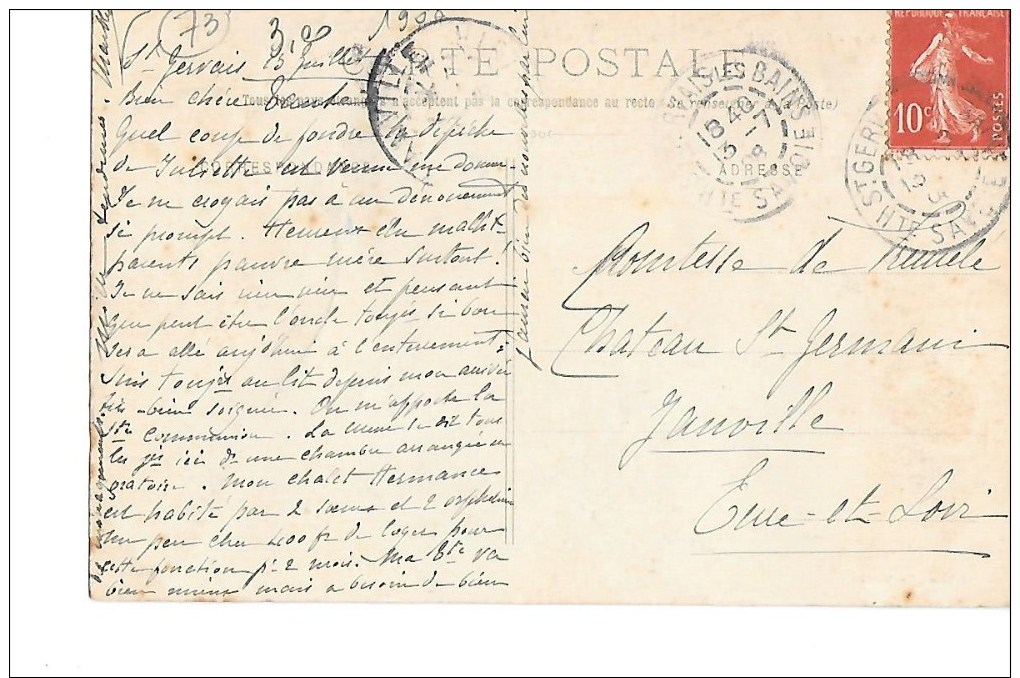 73
3,00
1908
CARTE POSTALE
Tous les pays étrangers n'acceptent pas la correspondance au recto (Se renseigner à la Poste)
CORRESPONDANCE
ADRESSE
REPUBLIQUE FRANÇAISE
10c
POSTES
ST GERVAIS LES BAINS
HTE SAVOIE
St Gervais 15 Juillet
Bien chère
Quel coup de foudre la dépêche
de Juliette est venue
Je ne croyais pas à un dénouement
si prompt.
parents pauvre mère surtout !
Je ne sais rien rien et pensant
que peut être l'oncle toujrs si bon
sera allé aujd'hui à l'enterrement.
Suis toujrs au lit depuis mon arrivée
très-bien soignée. On m'apporte la
Ste Communion. La messe se dit tous
les jrs ici ds une chambre arrangée en
oratoire. Mon chalet Hermance
est habité par 2 sœurs et 2 orphelines
un peu cher 400 fr de loyer pour
cette fonction pr 2 mois. Ma Bte va
bien mieux mais a besoin de bien
de ménagements.
Comtesse de
Château St Germain
Janville
Eure-et-Loir